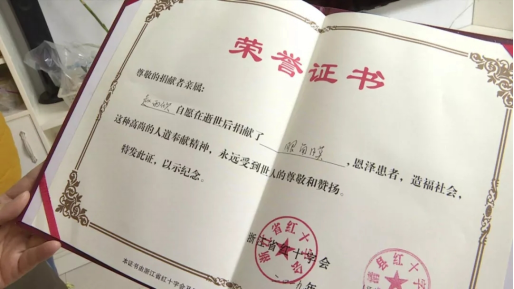 荣誉证书
尊敬的捐献者亲属:
自愿在逝世后捐献了 眼角膜 ,恩泽患者,造福社会,
这种高尚的人道奉献精神,永远受到世人的尊敬和赞扬。
特发此证,以示纪念。
浙江省红十字会
年
本证书由浙江省红十字会